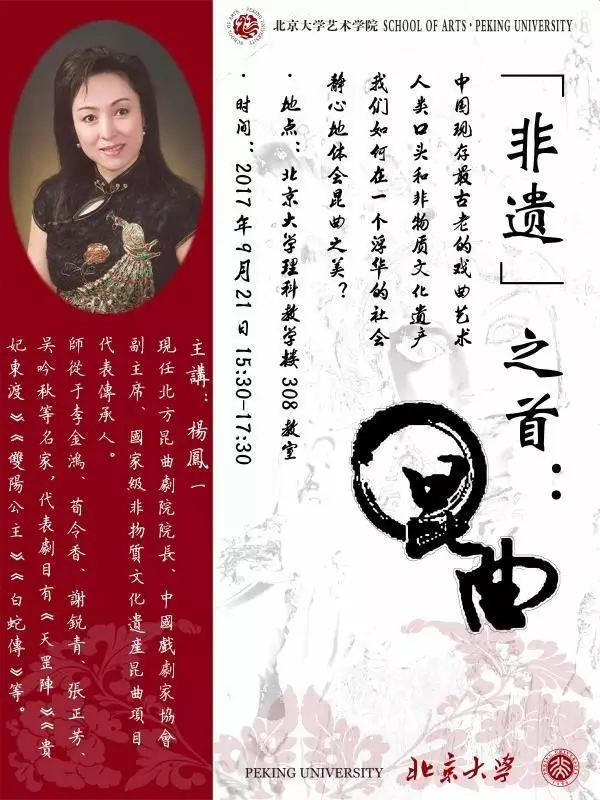 北京大学艺术学院 SCHOOL OF ARTS·PEKING UNIVERSITY
「非遗」之首：
昆曲
中国现存最古老的戏曲艺术
人类口头和非物质文化遗产
我们如何在一个浮华的社会
静心地体会昆曲之美？
·地点：北京大学理科教学楼 308 教室
·时间：2017 年 9 月 21 日 15:30-17:30
主講：楊鳳一
現任北方昆曲劇院院長、中國戲劇家協會
副主席、國家級非物質文化遺産昆曲項目
代表傳承人。
師從于李金鴻、荀令香、謝鋭青、張正芳、
吴吟秋等名家，代表劇目有《天罡陣》《貴
妃東渡》《雙陽公主》《白蛇傳》等。
PEKING UNIVERSITY
北京大學